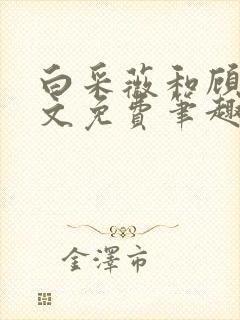 白采薇和顾
文免费笔趣
金泽市